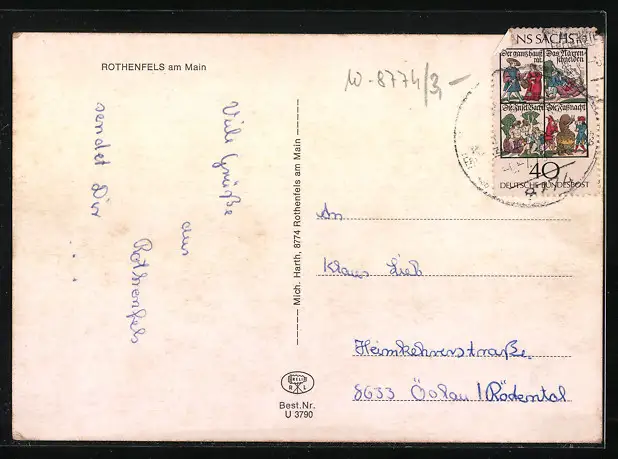 ROTHENFELS am Main
W-8774/3,-
Viele Grüße
aus
Rothenfels
sendet Dir
...
Mich. Harth, 8774 Rothenfels am Main
Best.Nr.
U 3790
NS SACHS
Der gantz hauß
Das Narren
schneiden
Die Fasnacht
40
DEUTSCHE BUNDESPOST
An
Klaus Lieb
Heimkehrerstraße
8633 Öslau / Rödental